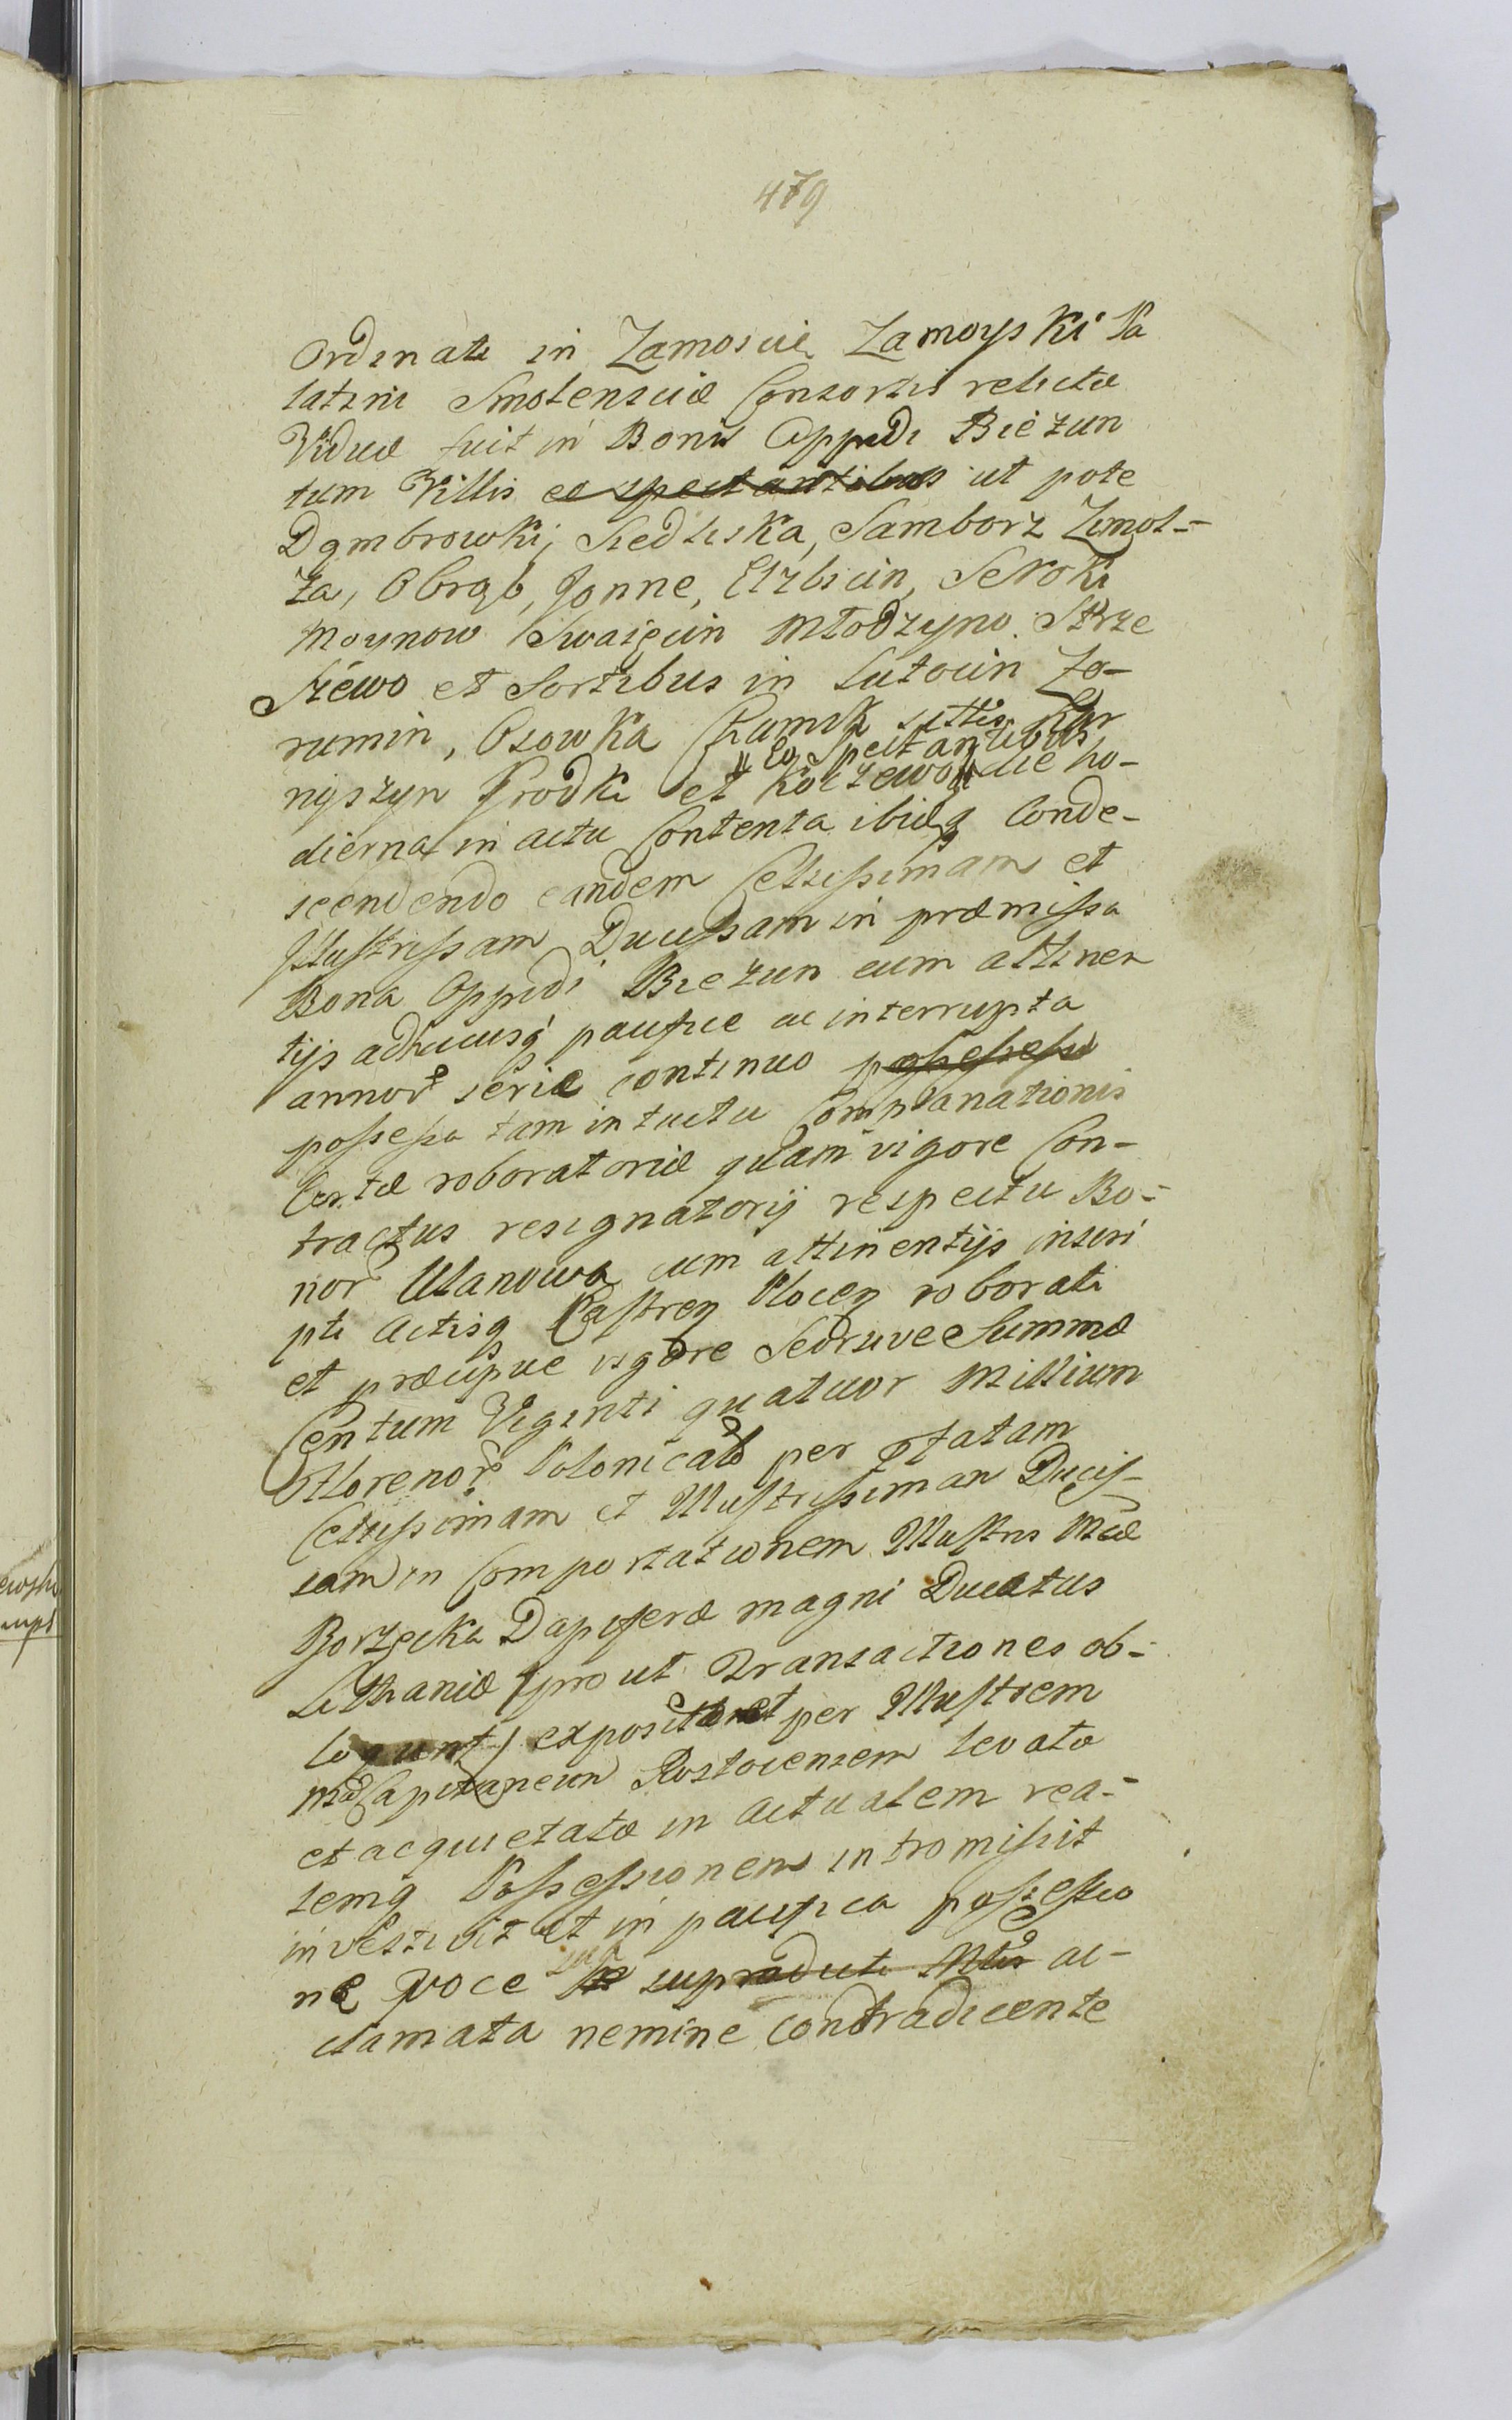 479
Ordinati in Zamoscie Zamoyski Pa
latini Smolensciæ Consortis relictæ
Viduæ fuit in Bonis Oppidi Biezun
tum Villis eo spectantibus ut pote
Dąmbrowki, Siedliska, Samborz Zimol-
za, Obrąb, Jonne, Elzbicin, Seroki
Moynow Swaięcin Młodzyno Strze
szewo et Sortibus in Lutocin Za-
rumin, Osowka Chamsk sittis Kar
" eo Spectantibus
niszyn Brodki et Kolczewo " die ho-
dierna in actu Contenta ibidq Conde-
scendendo eandem Celsissimam et
Illustrissam Ducissam in præmissa
Bona Oppidi Biezun cum attinen
tijs adhucusq pacifice ac interrupta
annor serie continuo possessa
possessa tam intuitu Complanationis
Certæ roboratoriæ quam vigore Con-
tractus resignatorij respectu Bo-
nor Ulanowa cum attinentijs inscri
pti Actisq Castren Plocen roborati
et præcipue vigore Sedruve Summæ
Centum Viginti quatuor Millium
Florenor Polonical per ptatam
Celsissimam et Illustrissiman Ducis-
sam in Comportationem Illustris Mcæ
Borzęcka Dapiferæ magni Ducatus
Lithaniæ (prout Transactiones ob-
loquunt) expositæ et per Illustrem
Mcd Capitaneum Rostociensem levatæ
et acquietatæ in Actualem rea-
lemq Possessionem intromissit
investivit et in pacifica possessio
ne voce sua supradicti Mtri ac-
clamata nemine contradicente